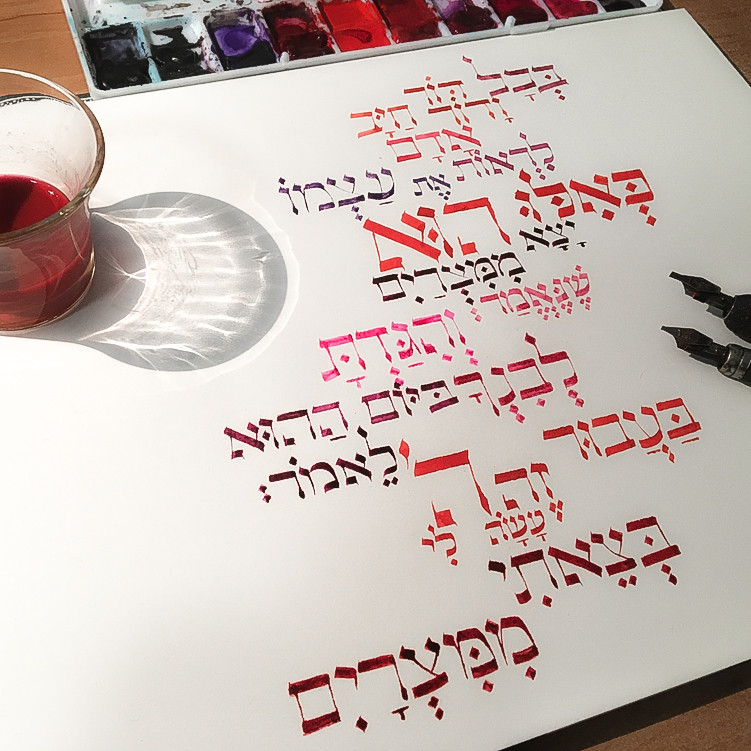 בְּכָל דּוֹר
וָדוֹר חַיָּב
אָדָם
לִרְאוֹת אֶת עַצְמוֹ
כְּאִלּוּ הוּא
יָצָא
מִמִּצְרַיִם
שֶׁנֶּאֱמַר
וְהִגַּדְתָּ
לְבִנְךָ בַּיּוֹם הַהוּא
לֵאמֹר:
בַּעֲבוּר
זֶה
עָשָׂה
ה׳
לִי
בְּצֵאתִי
מִמִּצְרָיִם